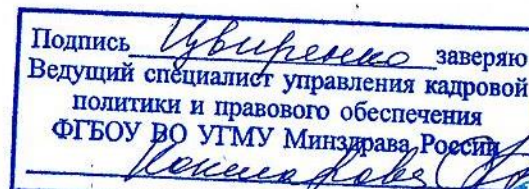 Подпись Цвиренко заверяю
Ведущий специалист управления кадровой
политики и правового обеспечения
ФГБОУ ВО УГМУ Минздрава России